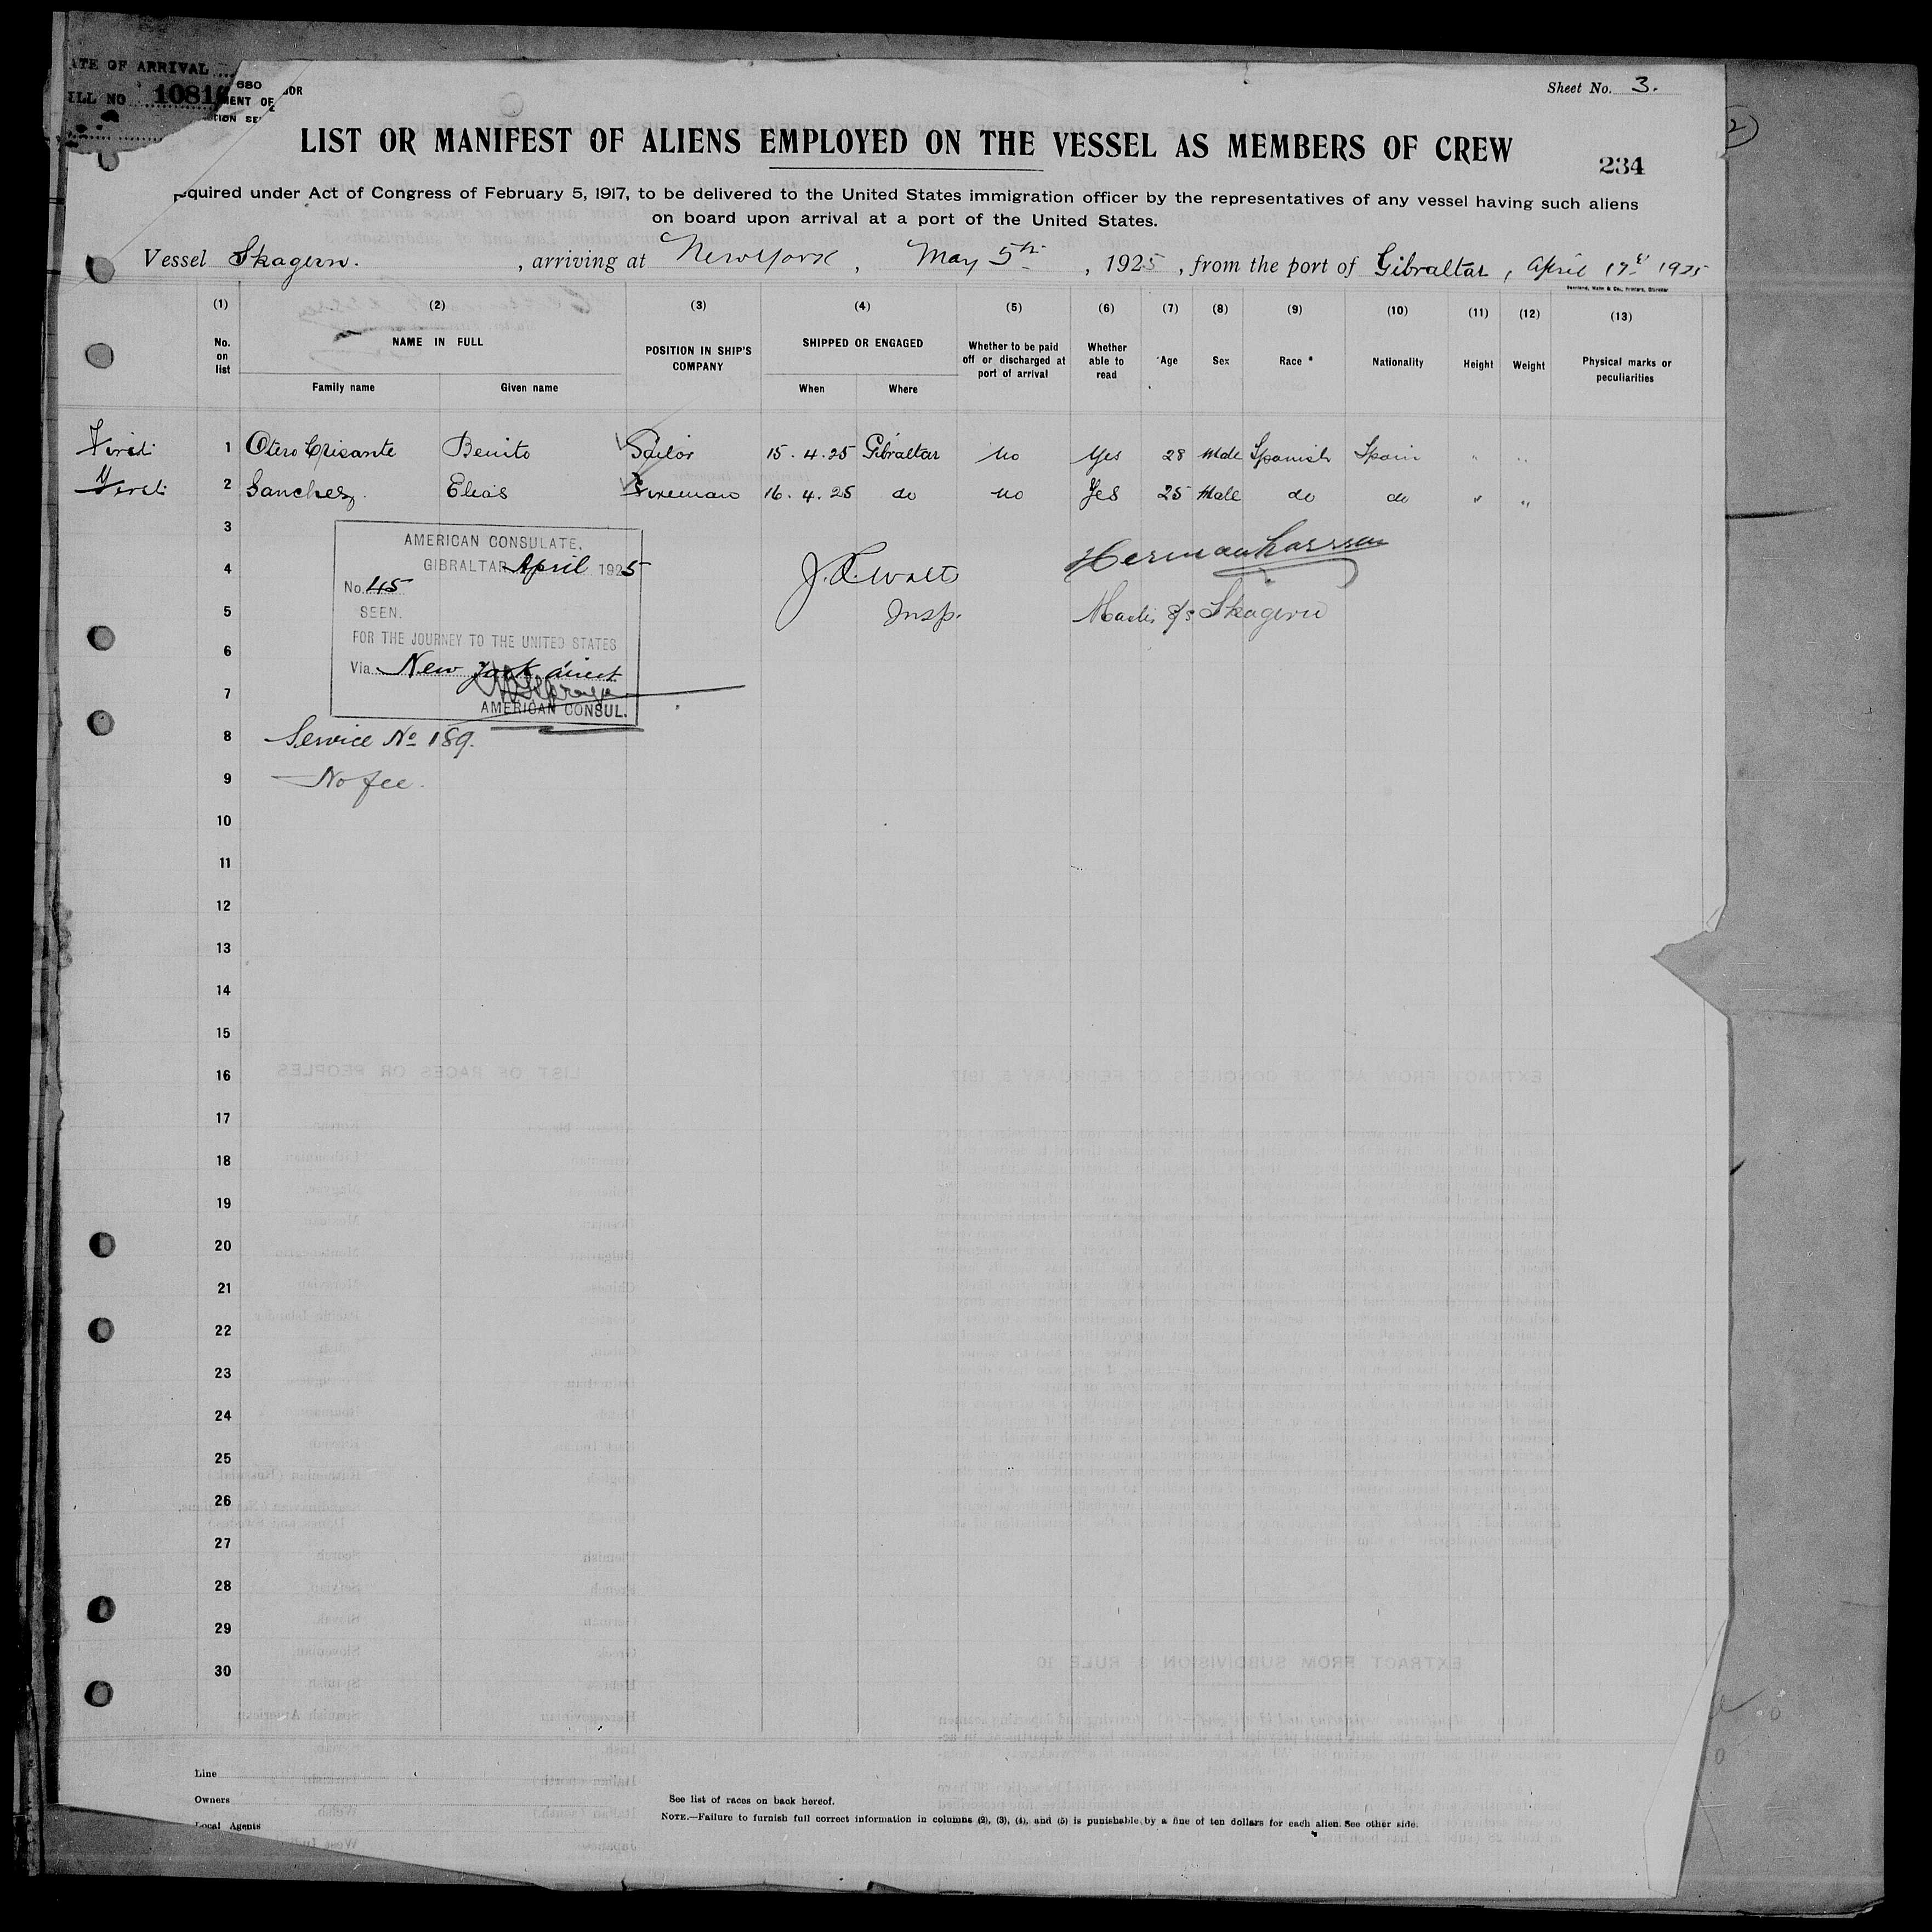 ATE OF ARRIVAL
ILL NO 1081
680
MENT OF
OR
Sheet No. 3.
LIST OR MANIFEST OF ALIENS EMPLOYED ON THE VESSEL AS MEMBERS OF CREW
234
quired under Act of Congress of February 5, 1917, to be delivered to the United States immigration officer by the representatives of any vessel having such aliens
on board upon arrival at a port of the United States.
Vessel Skagern. , arriving at New York , May 5th , 1925 , from the port of Gibraltar , April 17th 1925
(1) (2) (3) (4) (5) (6) (7) (8) (9) (10) (11) (12) (13)
No. on list
NAME IN FULL
Family name Given name
POSITION IN SHIP'S COMPANY
SHIPPED OR ENGAGED
When Where
Whether to be paid off or discharged at port of arrival
Whether able to read
Age Sex Race * Nationality Height Weight
Physical marks or peculiarities
1 Otero Crisante Benito Sailor 15.4.25 Gibraltar No Yes 28 Male Spanish Spain " "
2 Sanchez. Elias Fireman 16.4.25 do no Yes 25 Male do do " "
3
4
5
6
7
8
9
10
11
12
13
14
15
16
17
18
19
20
21
22
23
24
25
26
27
28
29
30
AMERICAN CONSULATE,
GIBRALTAR April 1925
No. 45
SEEN.
FOR THE JOURNEY TO THE UNITED STATES
Via New York direct
AMERICAN CONSUL.
Insp.
Herman Larsson
Skagern
Service No 189.
No fee.
Line
Owners
Local Agents
See list of races on back hereof.
NOTE.—Failure to furnish full correct information in columns (2), (3), (4), and (5) is punishable by a fine of ten dollars for each alien. See other side.